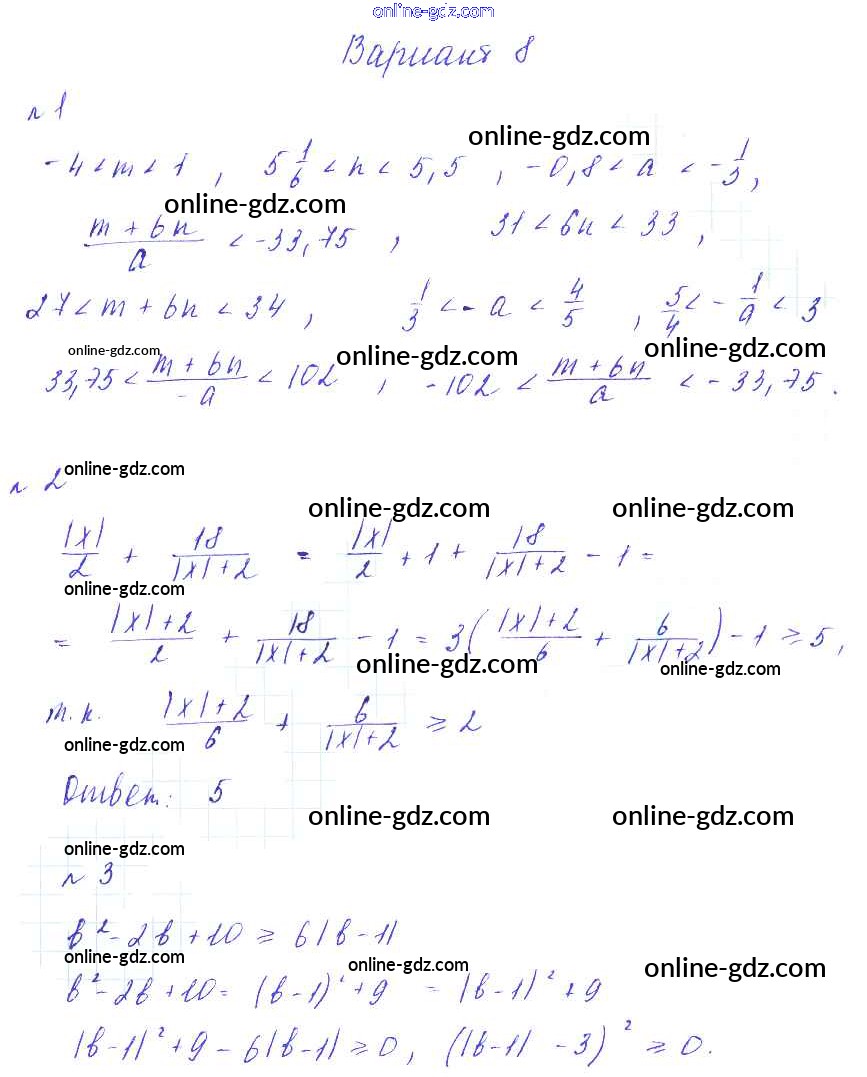 online-gdz.com
Вариант 8
№ 1
online-gdz.com
-4 < m < 1 , 5 1/6 < n < 5,5 , -0,8 < a < -1/3 ,
online-gdz.com
(m + 6n)/a < -33,75 , 31 < 6n < 33 ,
27 < m + 6n < 34 , 1/3 < -a < 4/5 , 5/4 < -1/a < 3
online-gdz.com online-gdz.com online-gdz.com
33,75 < (m + 6n)/-a < 102 , -102 < (m + 6n)/a < -33,75 .
online-gdz.com
№ 2
online-gdz.com online-gdz.com
|x|/2 + 18/(|x|+2) = |x|/2 + 1 + 18/(|x|+2) - 1 =
online-gdz.com
= (|x|+2)/2 + 18/(|x|+2) - 1 = 3((|x|+2)/6 + 6/(|x|+2)) - 1 ≥ 5 ,
online-gdz.com online-gdz.com
т.к. (|x|+2)/6 + 6/(|x|+2) ≥ 2
online-gdz.com
Ответ: 5
online-gdz.com online-gdz.com
online-gdz.com
№ 3
b² - 2b + 10 ≥ 6|b-1|
online-gdz.com online-gdz.com online-gdz.com
b² - 2b + 10 = (b-1)² + 9 = |b-1|² + 9
|b-1|² + 9 - 6|b-1| ≥ 0, (|b-1| - 3)² ≥ 0.